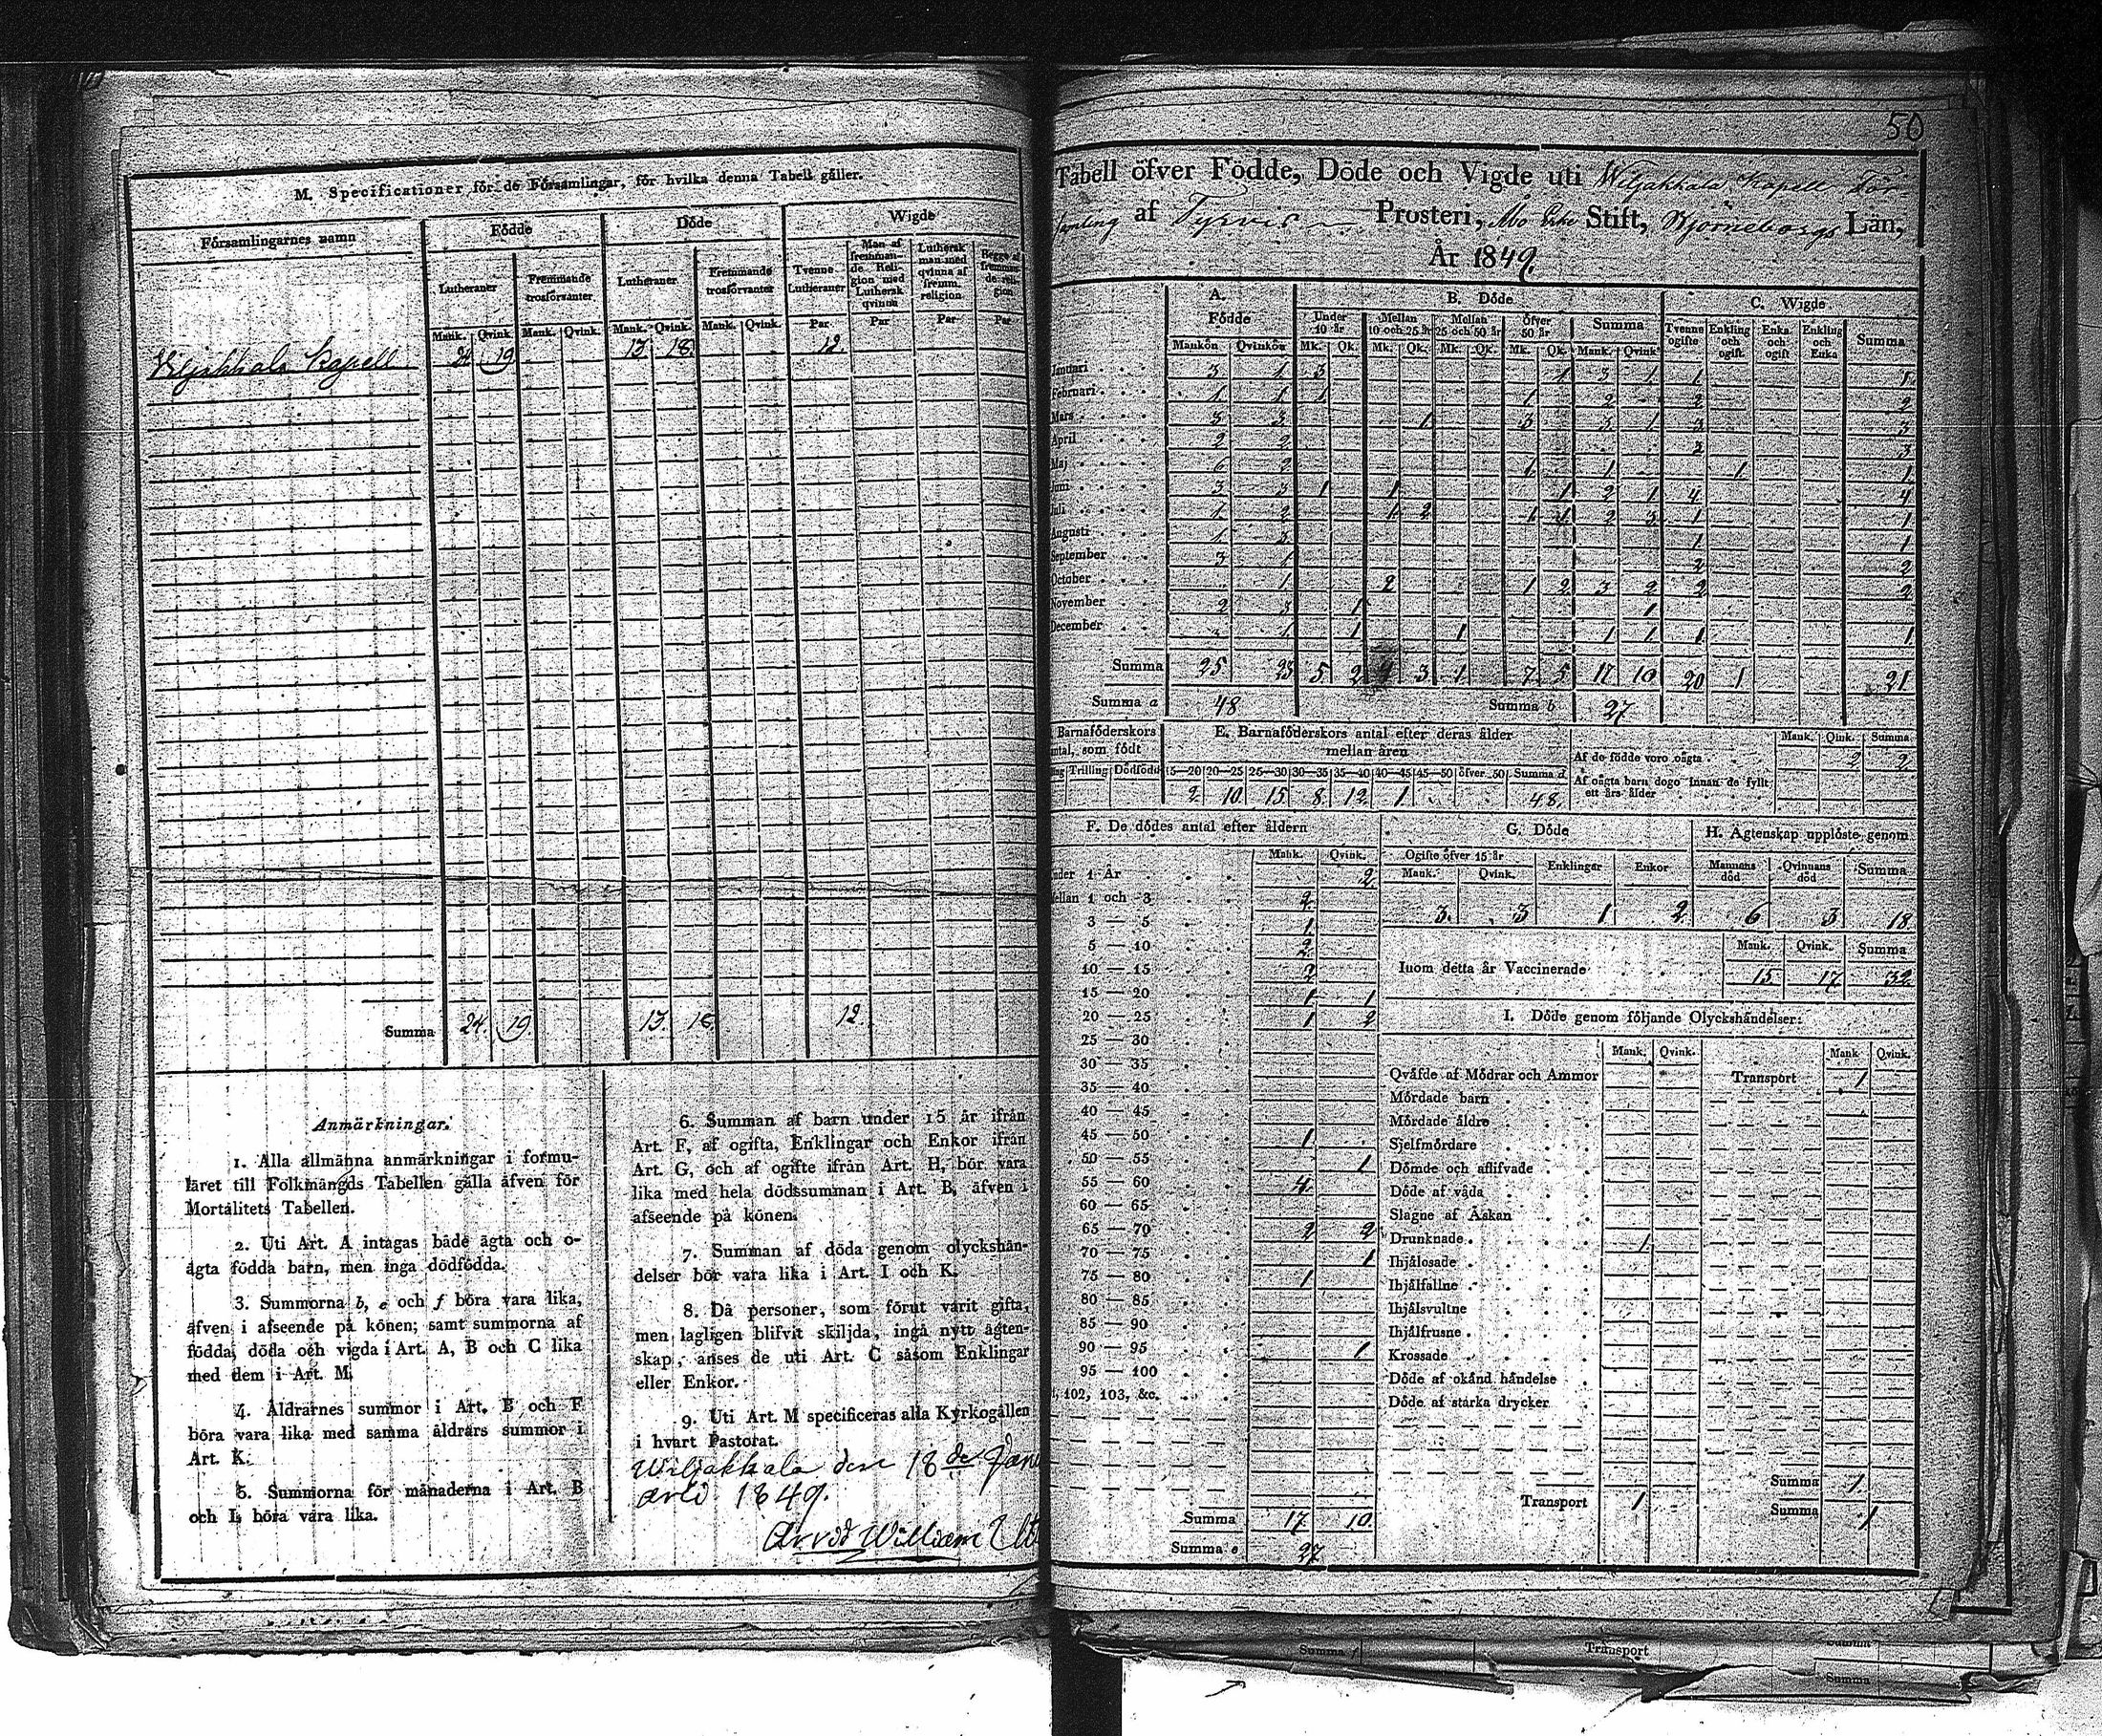 M. Specificationer för de Församlingar, för hvilka denna Tabell gäller.
Församlingarnes namn
Födde
Döde
Wigde
Lutheraner
Fremmande trosförvanter
Lutheraner
Fremmande trosförvanter
Tvenne Lutheraner
Man af fremmande Religion med Luthersk qvinna
Luthersk man med qvinna af fremm. religion
Begge af fremmande religion
Mank. Qvink. Mank. Qvink. Mank. Qvink. Mank. Qvink. Par Par Par Par
Wiljakkala Kapell 24 19 13 18 12.
Summa 24. 19. 13. 18 12.
Anmärkningar.
1. Alla allmänna anmärkningar i formu-
läret till Folkmängds Tabellen gälla äfven för
Mortalitets Tabellen.
2. Uti Art. A intagas både ägta och o-
ägta födda barn, men inga dödfödda.
3. Summorna b, e och f böra vara lika,
äfven i afseende på könen; samt summorna af
födda, döda och vigda i Art. A, B och C lika
med dem i Art. M.
4. Åldrarnes summor i Art. B och F
böra vara lika med samma åldrars summor i
Art. K.
5. Summorna för månaderna i Art. B
och L böra vara lika.
6. Summan af barn under 15 år ifrån
Art. F, af ogifta, Enklingar och Enkor ifrån
Art. G, och af ogifte ifrån Art. H, bör vara
lika med hela dödssumman i Art. B, äfven i
afseende på könen.
7. Summan af döda genom olyckshän-
delser bör vara lika i Art. I och K.
8. Då personer, som förut varit gifta,
men lagligen blifvit skiljda, ingå nytt ägten-
skap, anses de uti Art. C såsom Enklingar
eller Enkor.
9. Uti Art. M specificeras alla Kyrkogällen
i hvart Pastorat.
Wiljakkala den 18de Janu
1849.
Arvid William
50
Tabell öfver Födde, Döde och Vigde uti Wiljakkala Kapell För-
samling af Tyrvis Prosteri, Åbo Erke Stift, Björneborgs Län,
År 1849.
A. Födde
B. Döde
C. Wigde
Under 10 år
Mellan 10 och 25 år
Mellan 25 och 50 år
Öfver 50 år
Summa
Tvenne ogifte
Enkling och ogift.
Enka och ogift
Enkling och Enka
Summa
Mankön Qvinkön Mk. Qk. Mk. Qk. Mk. Qk. Mk. Qk. Mank. Qvink.
Januari 3 1 3 1 3 1 1 1.
Februari 1 1 1 1 2 2 2
Mars 3 3 1 3 3 1 3 3
April 2 2 3 3
Maj 6 2 1 1 1 1.
Juni 3 3 1 1 1 2 1 4 4
Juli 1 2 1 2 1 1 2 3 1 1
Augusti 1 3 1 1
September 3 1 2 2
October 1 2 1 2 3 2 2 2
November 2 3 1 1
December 1 1 1 1 1 1 1
Summa 25 23 5 2 4 3 1 7 5 17 10 20 1 21
Summa a 48 Summa b 27
Barnaföderskors
antal, som födt
Trilling Dödfödt
E. Barnaföderskors antal efter deras ålder
mellan åren
15—20 20—25 25—30 30—35 35—40 40—45 45—50 öfver 50 Summa d.
2. 10. 15. 8. 12. 1 48.
Mank. Qink. Summa
Af de födde voro oägta 2 2.
Af oägta barn dogo innan de fyllt
ett års ålder
F. De dödes antal efter åldern
Mank. Qvink.
under 1 År 2
Mellan 1 och 3 2
3 — 5 1.
5 — 10 2.
10 — 15 2
15 — 20 1 1
20 — 25 1 2
25 — 30
30 — 35
35 — 40
40 — 45
45 — 50 1
50 — 55 1
55 — 60 4.
60 — 65
65 — 70 2 2
70 — 75 1
75 — 80 1
80 — 85
85 — 90
90 — 95 1
95 — 100
102, 103, &c.
Summa 17. 10.
Summa e 27
G. Döde
Ogifte öfver 15 år
Mank. Qvink.
Enklingar
Enkor
3. 3 1 2
H. Ägtenskap upplöste genom
Mannens död
Qvinnans död
Summa
6 3 18.
Mank. Qvink. Summa
Inom detta år Vaccinerade 15. 17. 32.
I. Döde genom följande Olyckshändelser:
Mank. Qvink. Mank Qvink.
Qväfde af Mödrar och Ammor
Transport 1
Mördade barn
Mördade äldre
Sjelfmördare
Dömde och aflifvade
Döde af våda
Slagne af Åskan
Drunknade 1.
Ihjälosade
Ihjälfallne
Ihjälsvultne
Ihjälfrusne
Krossade
Döde af okänd händelse
Döde af starka drycker
Summa 1.
Transport 1
Summa 1
Summa f
Transport
Summa